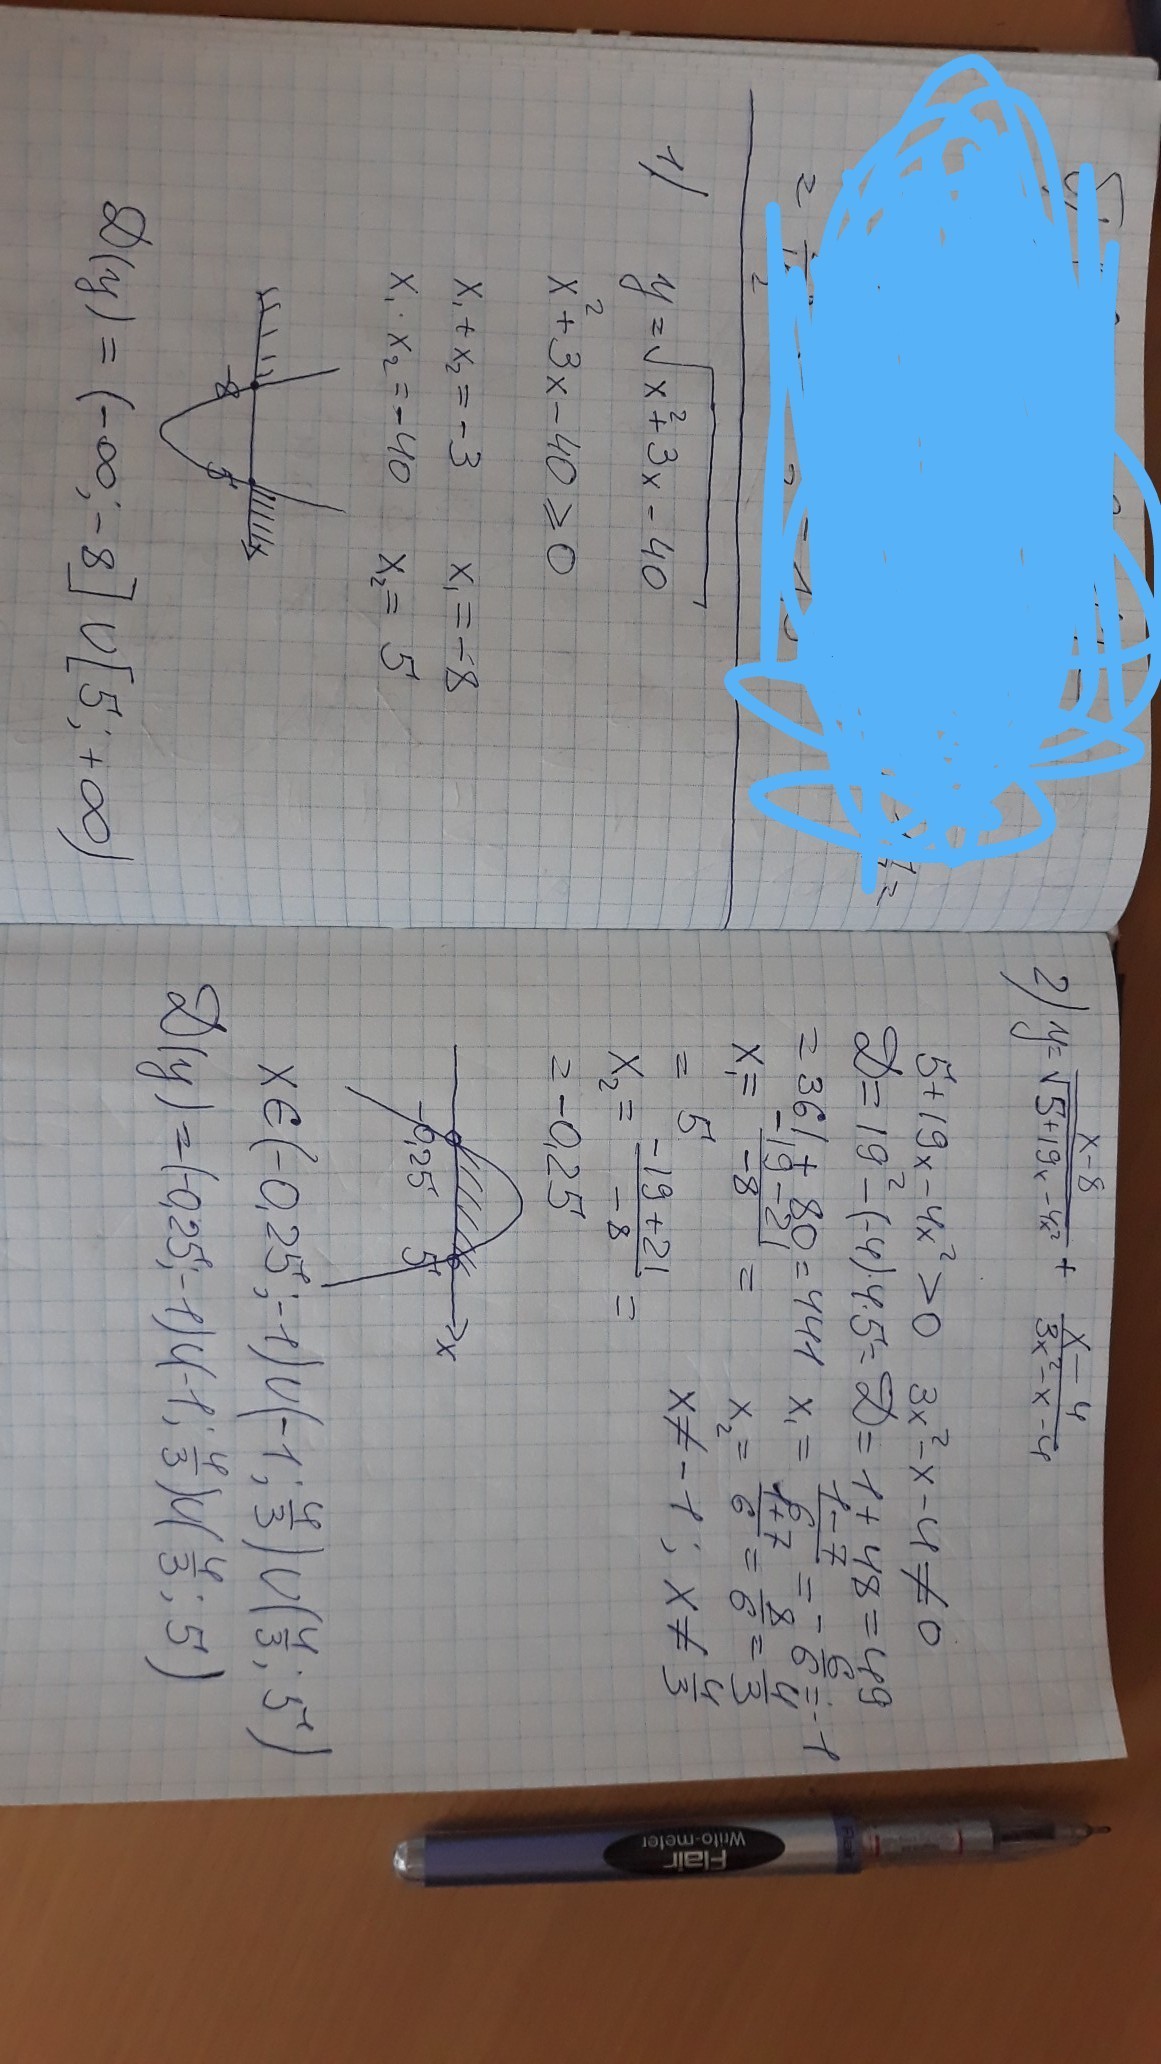 1) y = √x² + 3x - 40
x² + 3x - 40 ⩾ 0
x₁ + x₂ = -3 x₁ = -8
x₁ · x₂ = -40 x₂ = 5
-8 5
D(y) = (-∞; -8] U [5; +∞)
2) y = x-8/√5+19x-4x² + x-4/3x²-x-4
5+19x-4x² > 0 3x²-x-4 ≠ 0
D = 19² - (-4)·4·5 = D = 1+48 = 49
= 361 + 80 = 441 x₁ = 1-7/6 = -6/6 = -1
x₁ = -19-21/-8 = x₂ = 1+7/6 = 8/6 = 4/3
= 5 x ≠ -1; x ≠ 4/3
x₂ = -19+21/-8 =
= -0,25
-0,25 5 x
x ∈ (-0,25; -1) U (-1; 4/3) U (4/3; 5)
D(y) = (-0,25; -1) U (-1; 4/3) U (4/3; 5)
Flair
Writo-meter
Flair